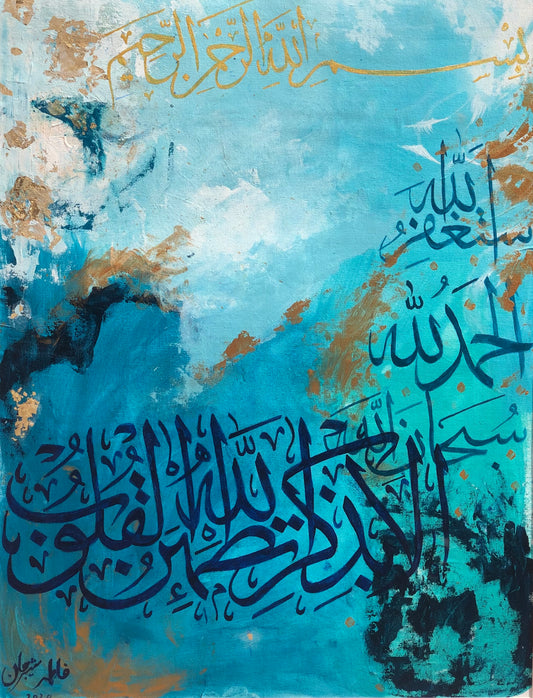 بِسْمِ اللهِ الرَّحْمٰنِ الرَّحِيمِ
استغفرُ اللّٰه
الحمدُ للّٰه
سُبحان اللّٰه
الا بذكر اللّٰه تطمئنُّ القلوب
فاطمہ
2020